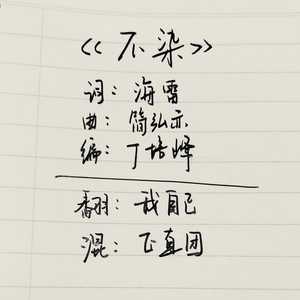 《不染》
词：海雷
曲：简弘亦
编：丁培峰
翻：我自己
混：正直团